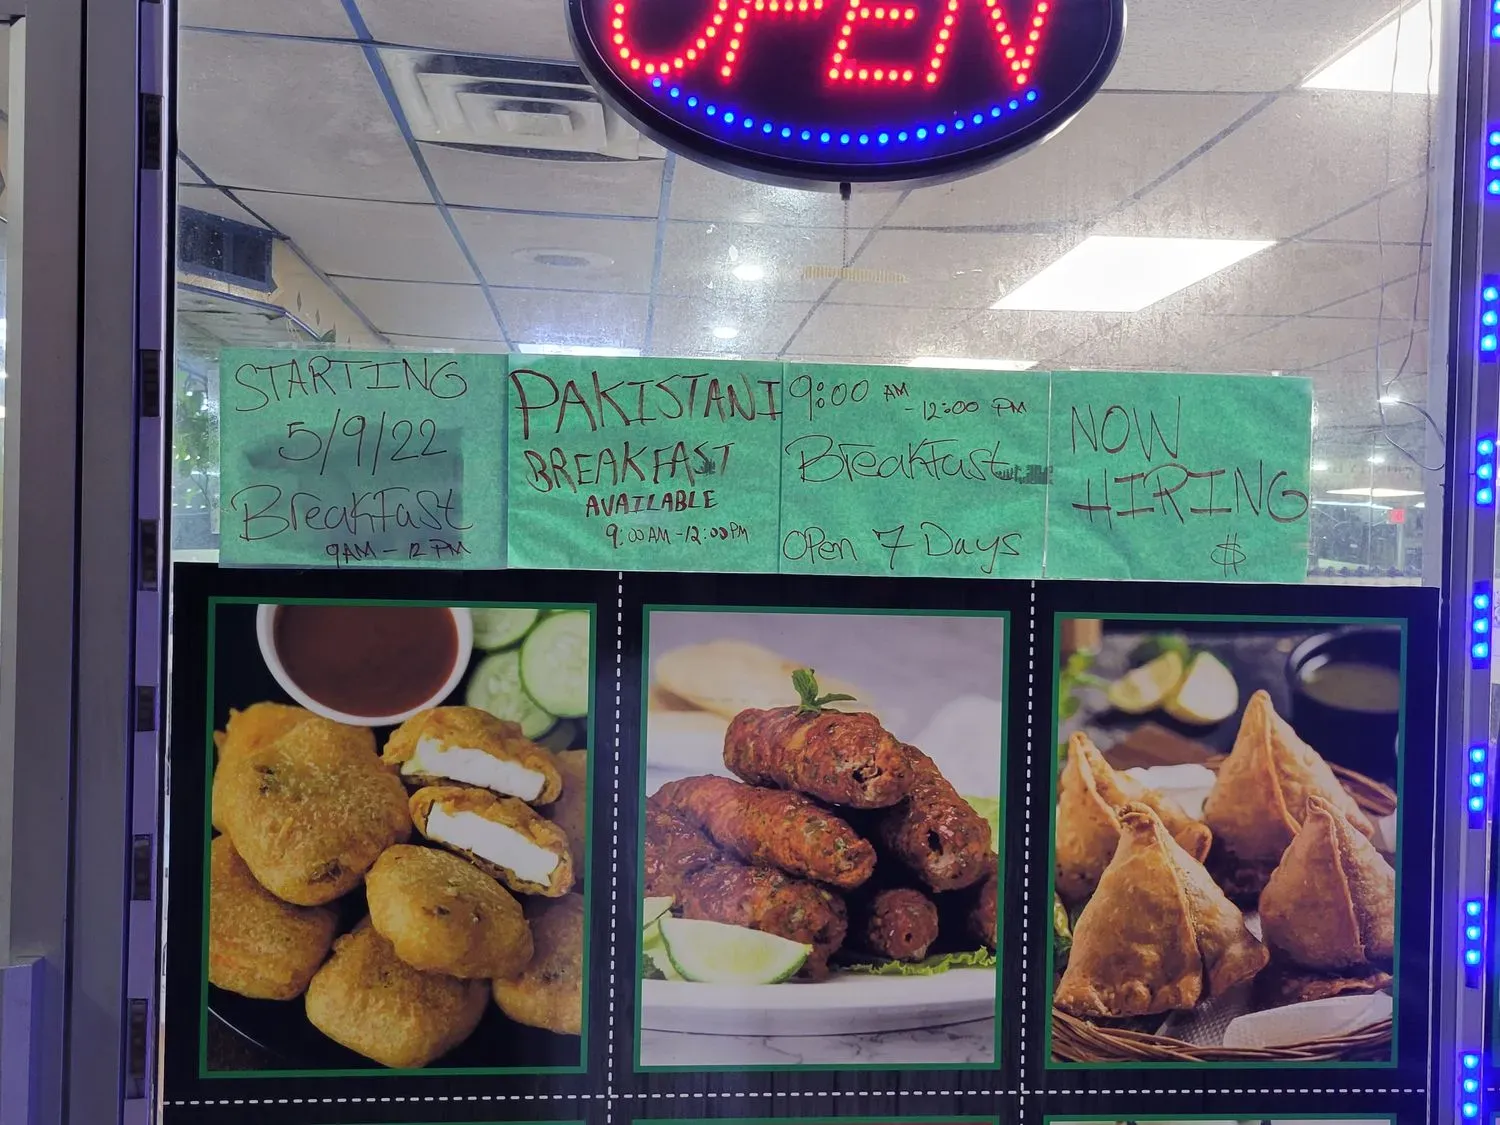 OPEN
STARTING
5/9/22
Breakfast
9AM - 12 PM
PAKISTANI
BREAKFAST
AVAILABLE
9:00AM-12:00PM
9:00 AM
-12:00 PM
Breakfast
OPen 7 Days
NOW
HIRING
$